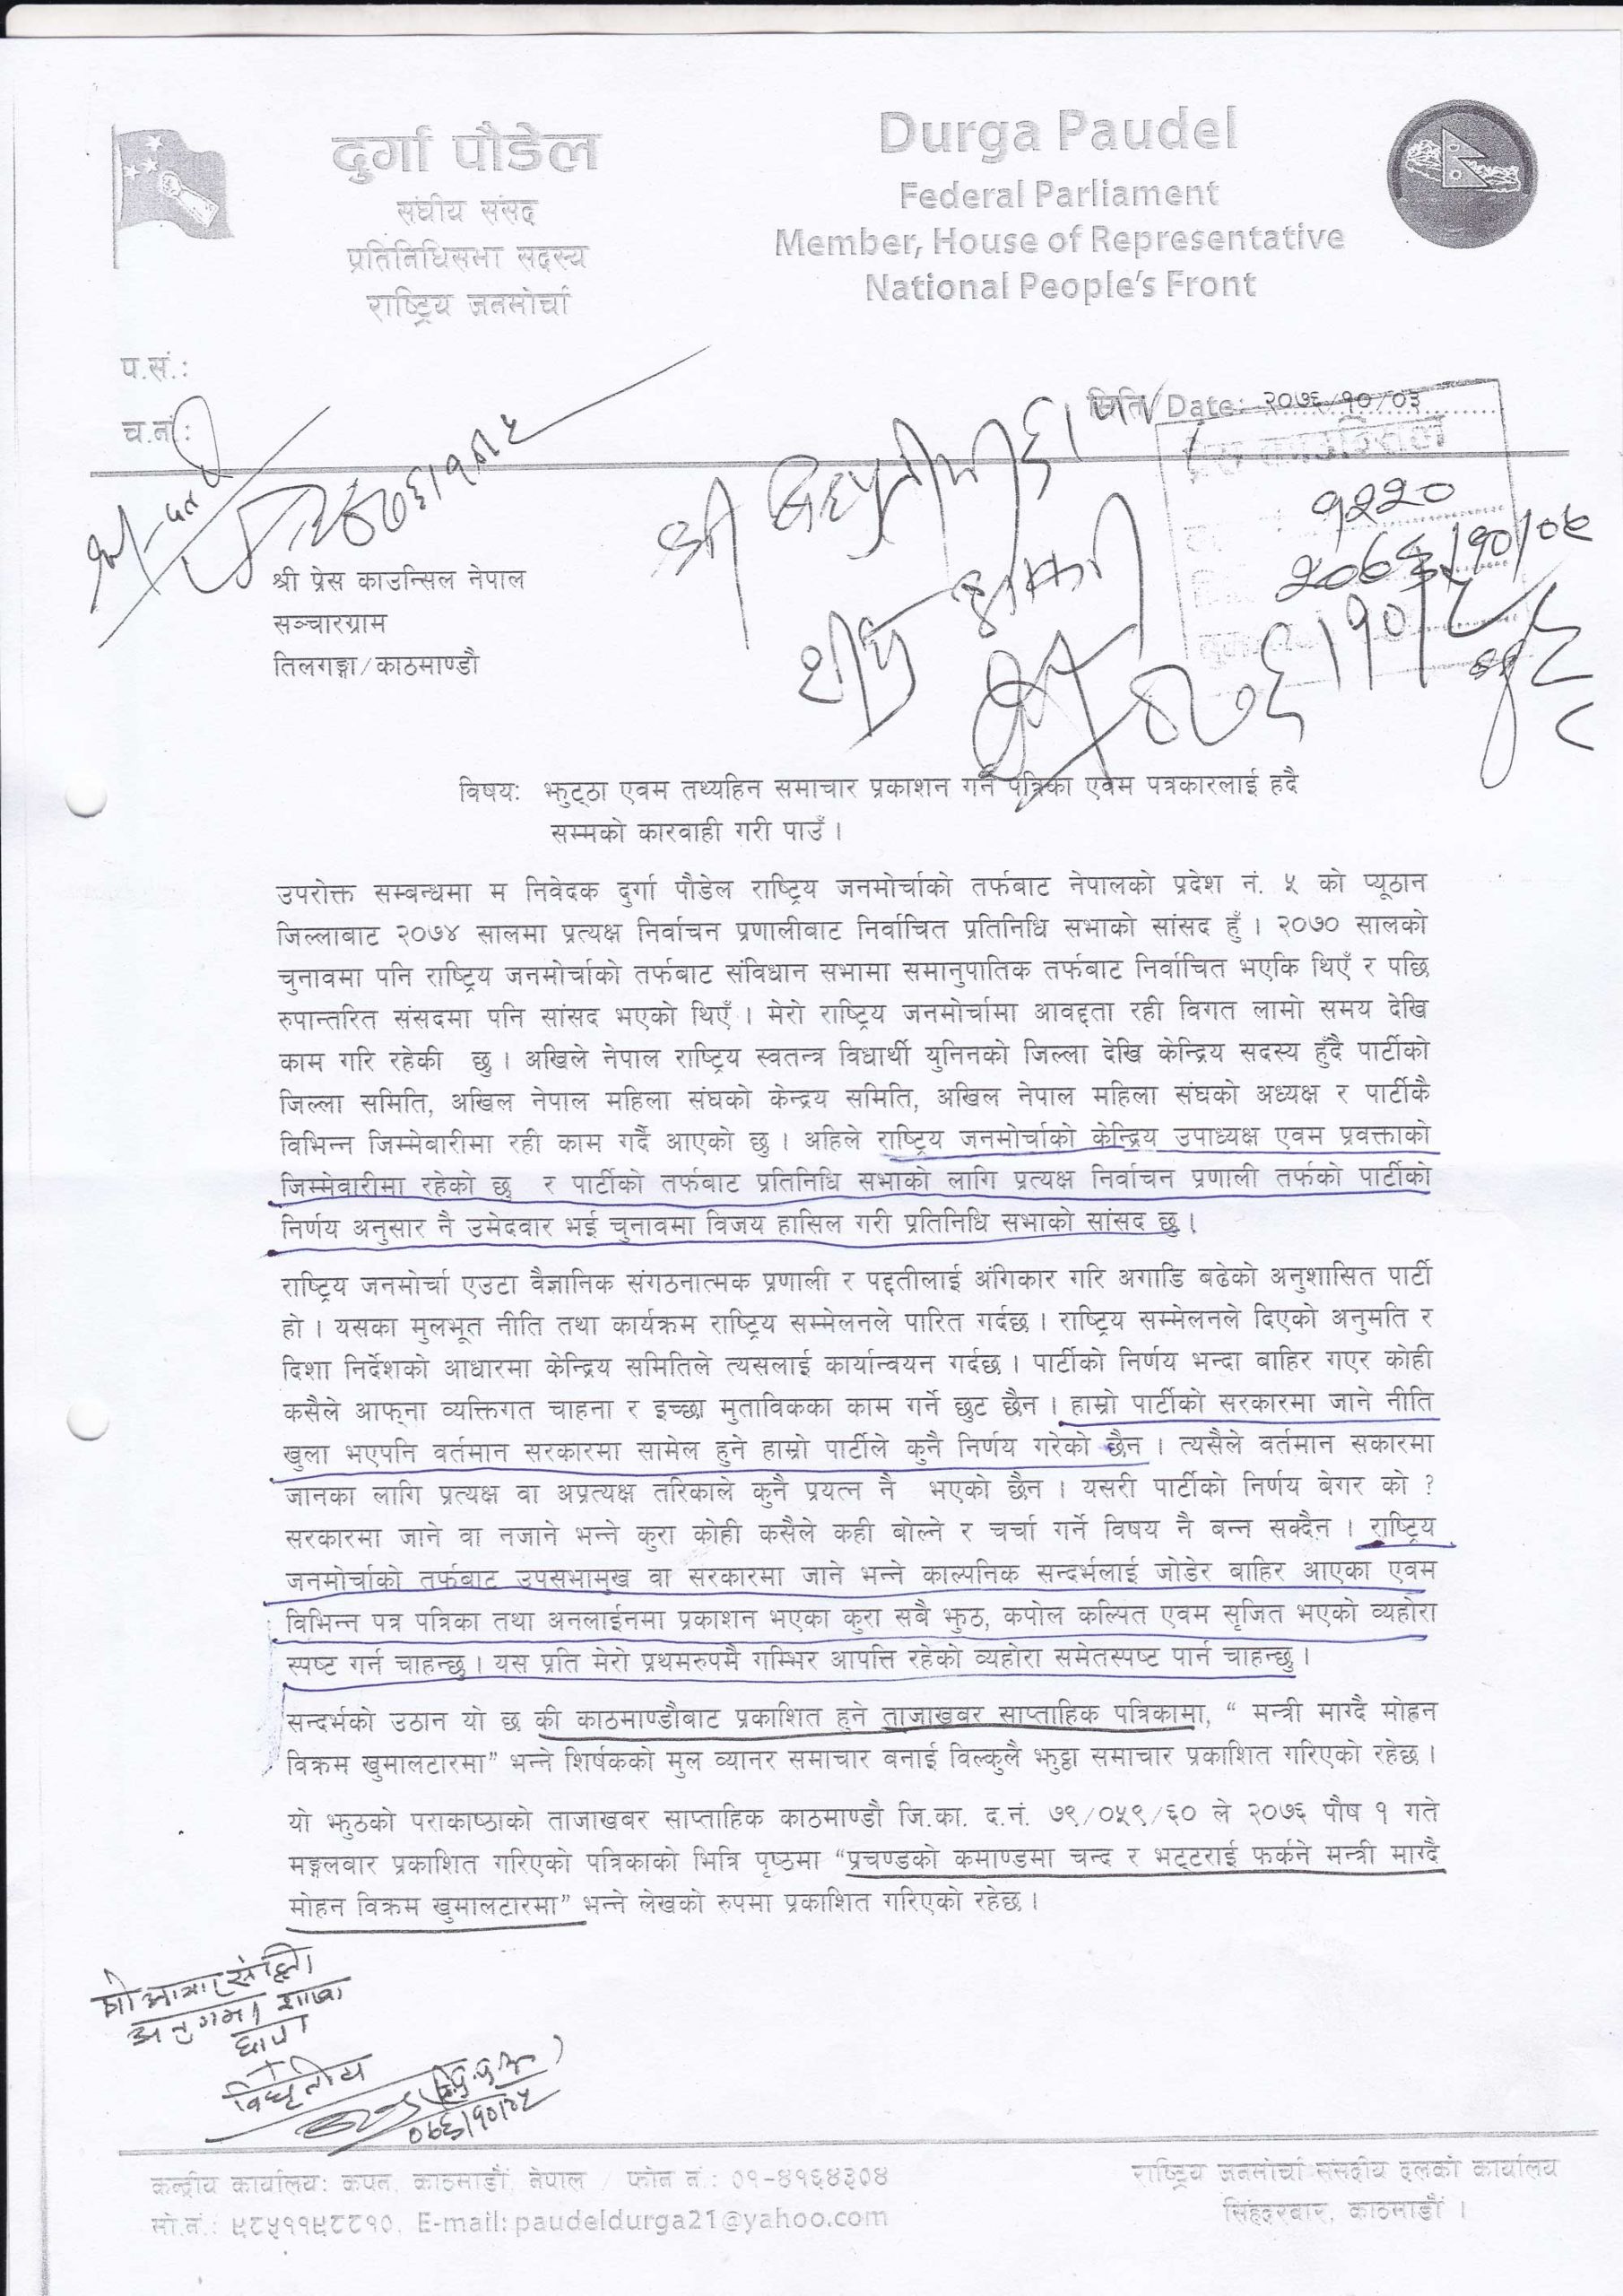 दुर्गा पौडेल
संघीय संसद
प्रतिनिधिसभा सदस्य
राष्ट्रिय जनमोर्चा
Durga Paudel
Federal Parliament
Member, House of Representative
National People's Front
प.सं.:
च.नं.:
मिति/Date: २०७६/१०/०३
प्रेस काउन्सिल
१२२०
२०७६/१०/०५
श्री
श्री प्रेस काउन्सिल नेपाल
सञ्चारग्राम
तिलगङ्गा/काठमाण्डौ
विषय: झुट्ठा एवम तथ्यहिन समाचार प्रकाशन गर्ने पत्रिका एवम पत्रकारलाई हदै
सम्मको कारवाही गरी पाउँ ।
उपरोक्त सम्बन्धमा म निवेदक दुर्गा पौडेल राष्ट्रिय जनमोर्चाको तर्फबाट नेपालको प्रदेश नं. ५ को प्यूठान
जिल्लाबाट २०७४ सालमा प्रत्यक्ष निर्वाचन प्रणालीबाट निर्वाचित प्रतिनिधि सभाको सांसद हुँ । २०७० सालको
चुनावमा पनि राष्ट्रिय जनमोर्चाको तर्फबाट संविधान सभामा समानुपातिक तर्फबाट निर्वाचित भएकि थिएँ र पछि
रुपान्तरित संसदमा पनि सांसद भएको थिएँ । मेरो राष्ट्रिय जनमोर्चामा आवद्दता रही विगत लामो समय देखि
काम गरि रहेकी छु । अखिले नेपाल राष्ट्रिय स्वतन्त्र विधार्थी युनिनको जिल्ला देखि केन्द्रिय सदस्य हुँदै पार्टीको
जिल्ला समिति, अखिल नेपाल महिला संघको केन्द्रय समिति, अखिल नेपाल महिला संघको अध्यक्ष र पार्टीकै
विभिन्न जिम्मेबारीमा रही काम गर्दै आएको छु । अहिले राष्ट्रिय जनमोर्चाको केन्द्रिय उपाध्यक्ष एवम प्रवक्ताको
जिम्मेवारीमा रहेको छु र पार्टीको तर्फबाट प्रतिनिधि सभाको लागि प्रत्यक्ष निर्वाचन प्रणाली तर्फको पार्टीको
निर्णय अनुसार नै उमेदवार भई चुनावमा विजय हासिल गरी प्रतिनिधि सभाको सांसद छु ।
राष्ट्रिय जनमोर्चा एउटा वैज्ञानिक संगठनात्मक प्रणाली र पद्दतीलाई अंगिकार गरि अगाडि बढेको अनुशासित पार्टी
हो । यसका मुलभूत नीति तथा कार्यक्रम राष्ट्रिय सम्मेलनले पारित गर्दछ । राष्ट्रिय सम्मेलनले दिएको अनुमति र
दिशा निर्देशको आधारमा केन्द्रिय समितिले त्यसलाई कार्यान्वयन गर्दछ । पार्टीको निर्णय भन्दा बाहिर गएर कोही
कसैले आफ्ना व्यक्तिगत चाहना र इच्छा मुताविकका काम गर्ने छुट छैन । हाम्रो पार्टीको सरकारमा जाने नीति
खुला भएपनि वर्तमान सरकारमा सामेल हुने हाम्रो पार्टीले कुनै निर्णय गरेको छैन । त्यसैले वर्तमान सकारमा
जानका लागि प्रत्यक्ष वा अप्रत्यक्ष तरिकाले कुनै प्रयत्न नै भएको छैन । यसरी पार्टीको निर्णय बेगर को ?
सरकारमा जाने वा नजाने भन्ने कुरा कोही कसैले कही बोल्ने र चर्चा गर्ने विषय नै बन्न सक्दैन । राष्ट्रिय
जनमोर्चाको तर्फबाट उपसभामुख वा सरकारमा जाने भन्ने काल्पनिक सन्दर्भलाई जोडेर बाहिर आएका एवम
विभिन्न पत्र पत्रिका तथा अनलाईनमा प्रकाशन भएका कुरा सबै झुठ, कपोल कल्पित एवम सृजित भएको व्यहोरा
स्पष्ट गर्न चाहन्छु । यस प्रति मेरो प्रथमरुपमै गम्भिर आपत्ति रहेको व्यहोरा समेतस्पष्ट पार्न चाहन्छु ।
सन्दर्भको उठान यो छ की काठमाण्डौबाट प्रकाशित हुने ताजाखबर साप्ताहिक पत्रिकामा, “ मन्त्री माग्दै मोहन
विक्रम खुमालटारमा” भन्ने शिर्षकको मुल व्यानर समाचार बनाई विल्कुलै झुठ्ठा समाचार प्रकाशित गरिएको रहेछ ।
यो झुठको पराकाष्ठाको ताजाखबर साप्ताहिक काठमाण्डौ जि.का. द.नं. ७९/०५९/६० ले २०७६ पौष १ गते
मङ्गलबार प्रकाशित गरिएको पत्रिकाको भित्रि पृष्ठमा “प्रचण्डको कमाण्डमा चन्द र भट्टराई फर्कने मन्त्री माग्दै
मोहन विक्रम खुमालटारमा” भन्ने लेखको रुपमा प्रकाशित गरिएको रहेछ ।
केन्द्रीय कार्यालय: कपन, काठमाडौं, नेपाल / फोन नं.: ०१-४१६४३०४
मो.नं.: ९८५११९८८१०, E-mail: paudeldurga21@yahoo.com
राष्ट्रिय जनमोर्चा संसदीय दलको कार्यालय
सिंहदरबार, काठमाडौं ।